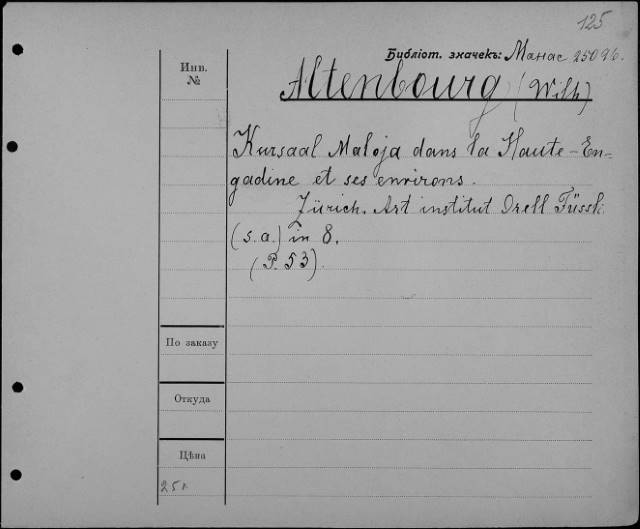 125
Библіот. значекъ: Манас 25096.
Инв. №
Altenbourg (Wilh)
Kursaal Maloja dans la Haute-En-
gadine et ses environs.
Zürich. Art institut Orell Füssli.
(s.a.) in 8.
(P. 53)
По заказу
Откуда
Цѣна
25к